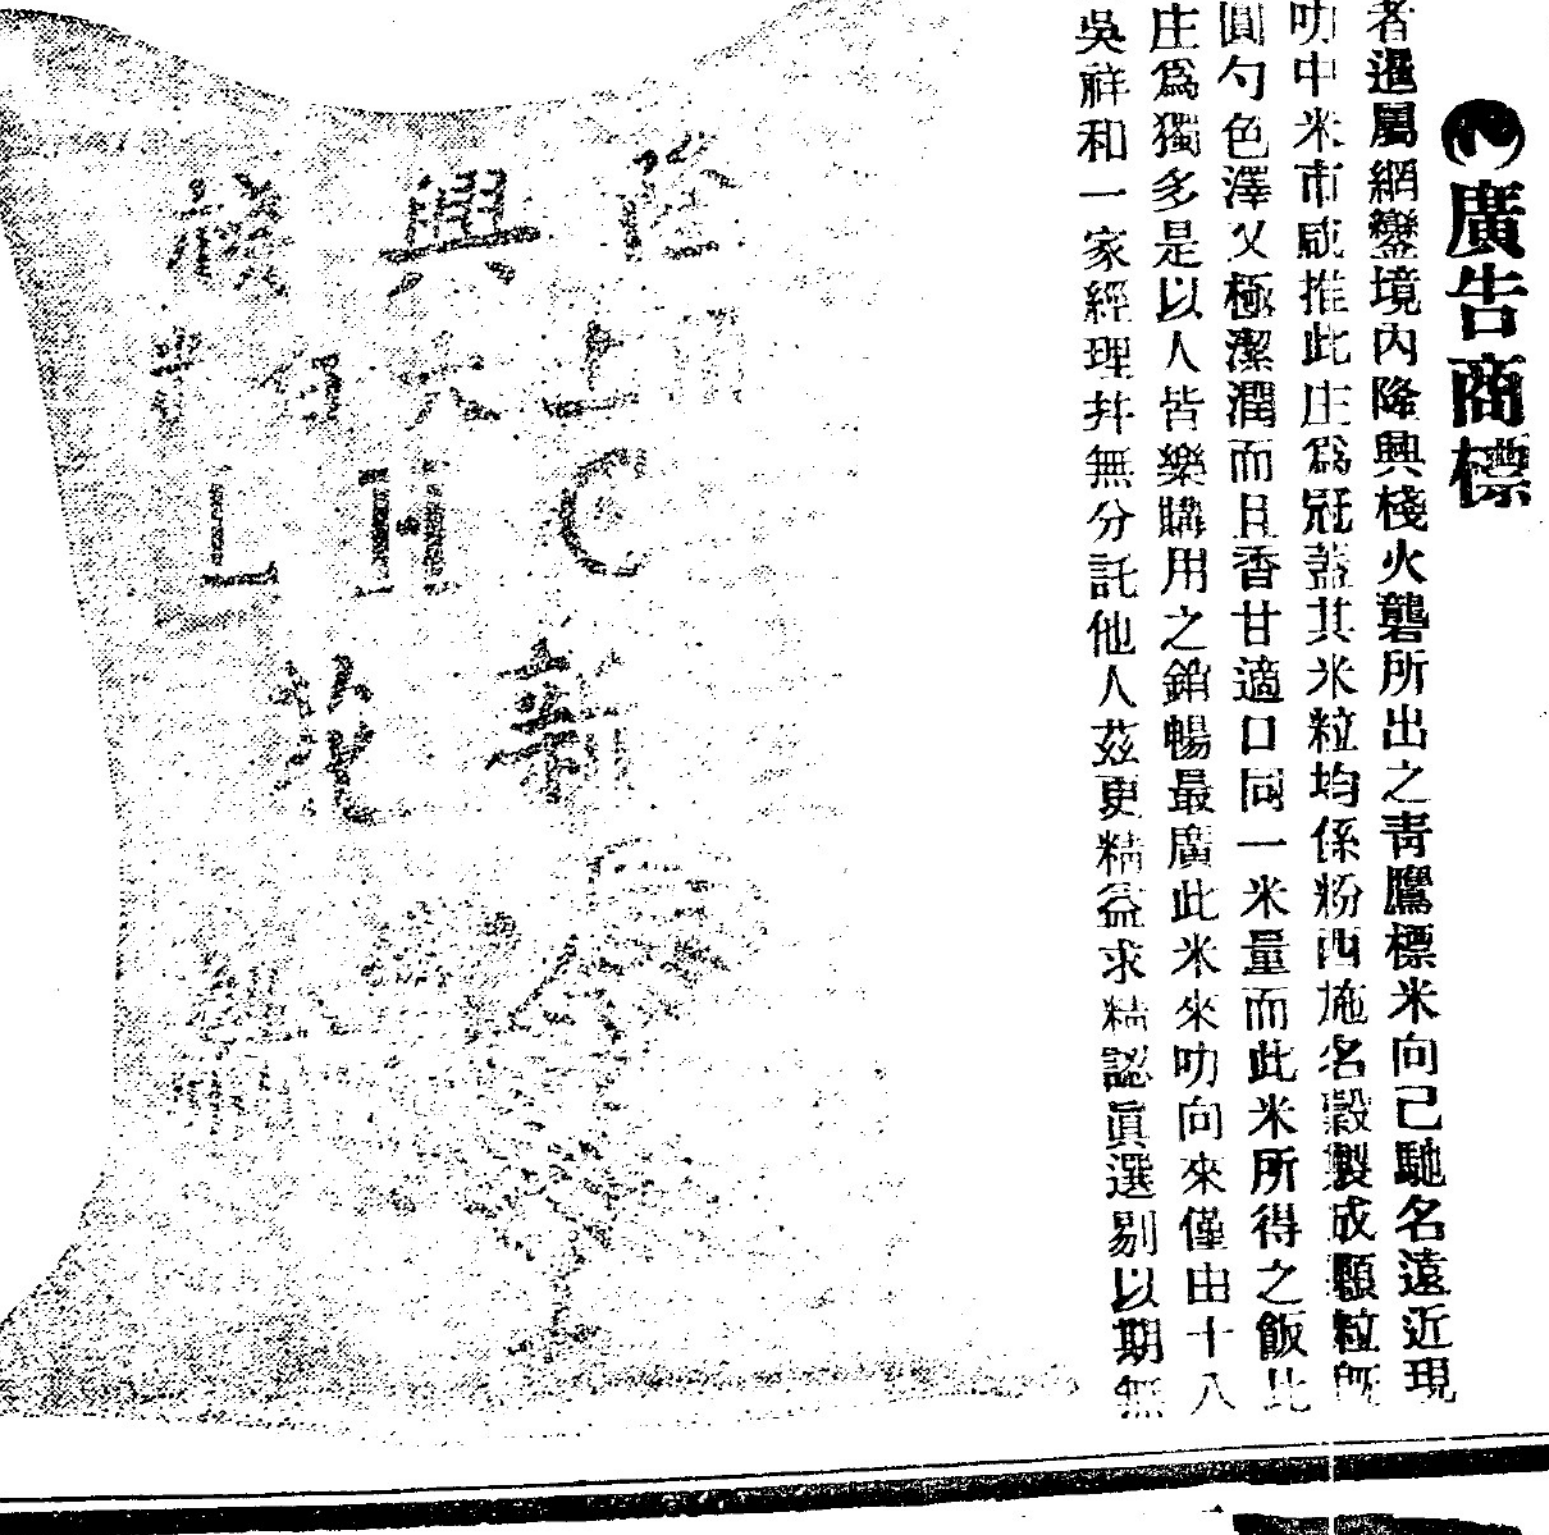 廣告商標
者暹屬網鑾境內隆興棧火礱所出之靑鷹標米向己馳名遠近現
叻中米市咸推此庄爲冠蓋其米粒均係粉西施名穀製成顆粒旣
圓勻色澤又極潔潤而且香甘適口同一米量而此米所得之飯比
庄爲獨多是以人皆樂購用之銷暢最廣此米來叻向來僅由十八
吳祥和一家經理幷無分託他人茲更精益求精認眞選剔以期無
隆興棧
LHC